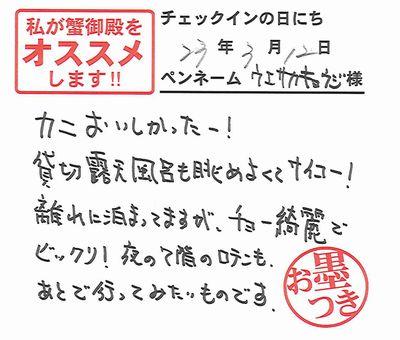 私が蟹御殿を
オススメ
します!!
チェックインの日にち
23年3月12日
ペンネーム ウエサカキョウジ様
カニおいしかったー!
貸切露天風呂も眺めよくてサイコー!
離れに泊まってますが、チョー綺麗で
ビックリ!夜の7階のロテンも、
あとで行ってみたいものです。
お墨つき